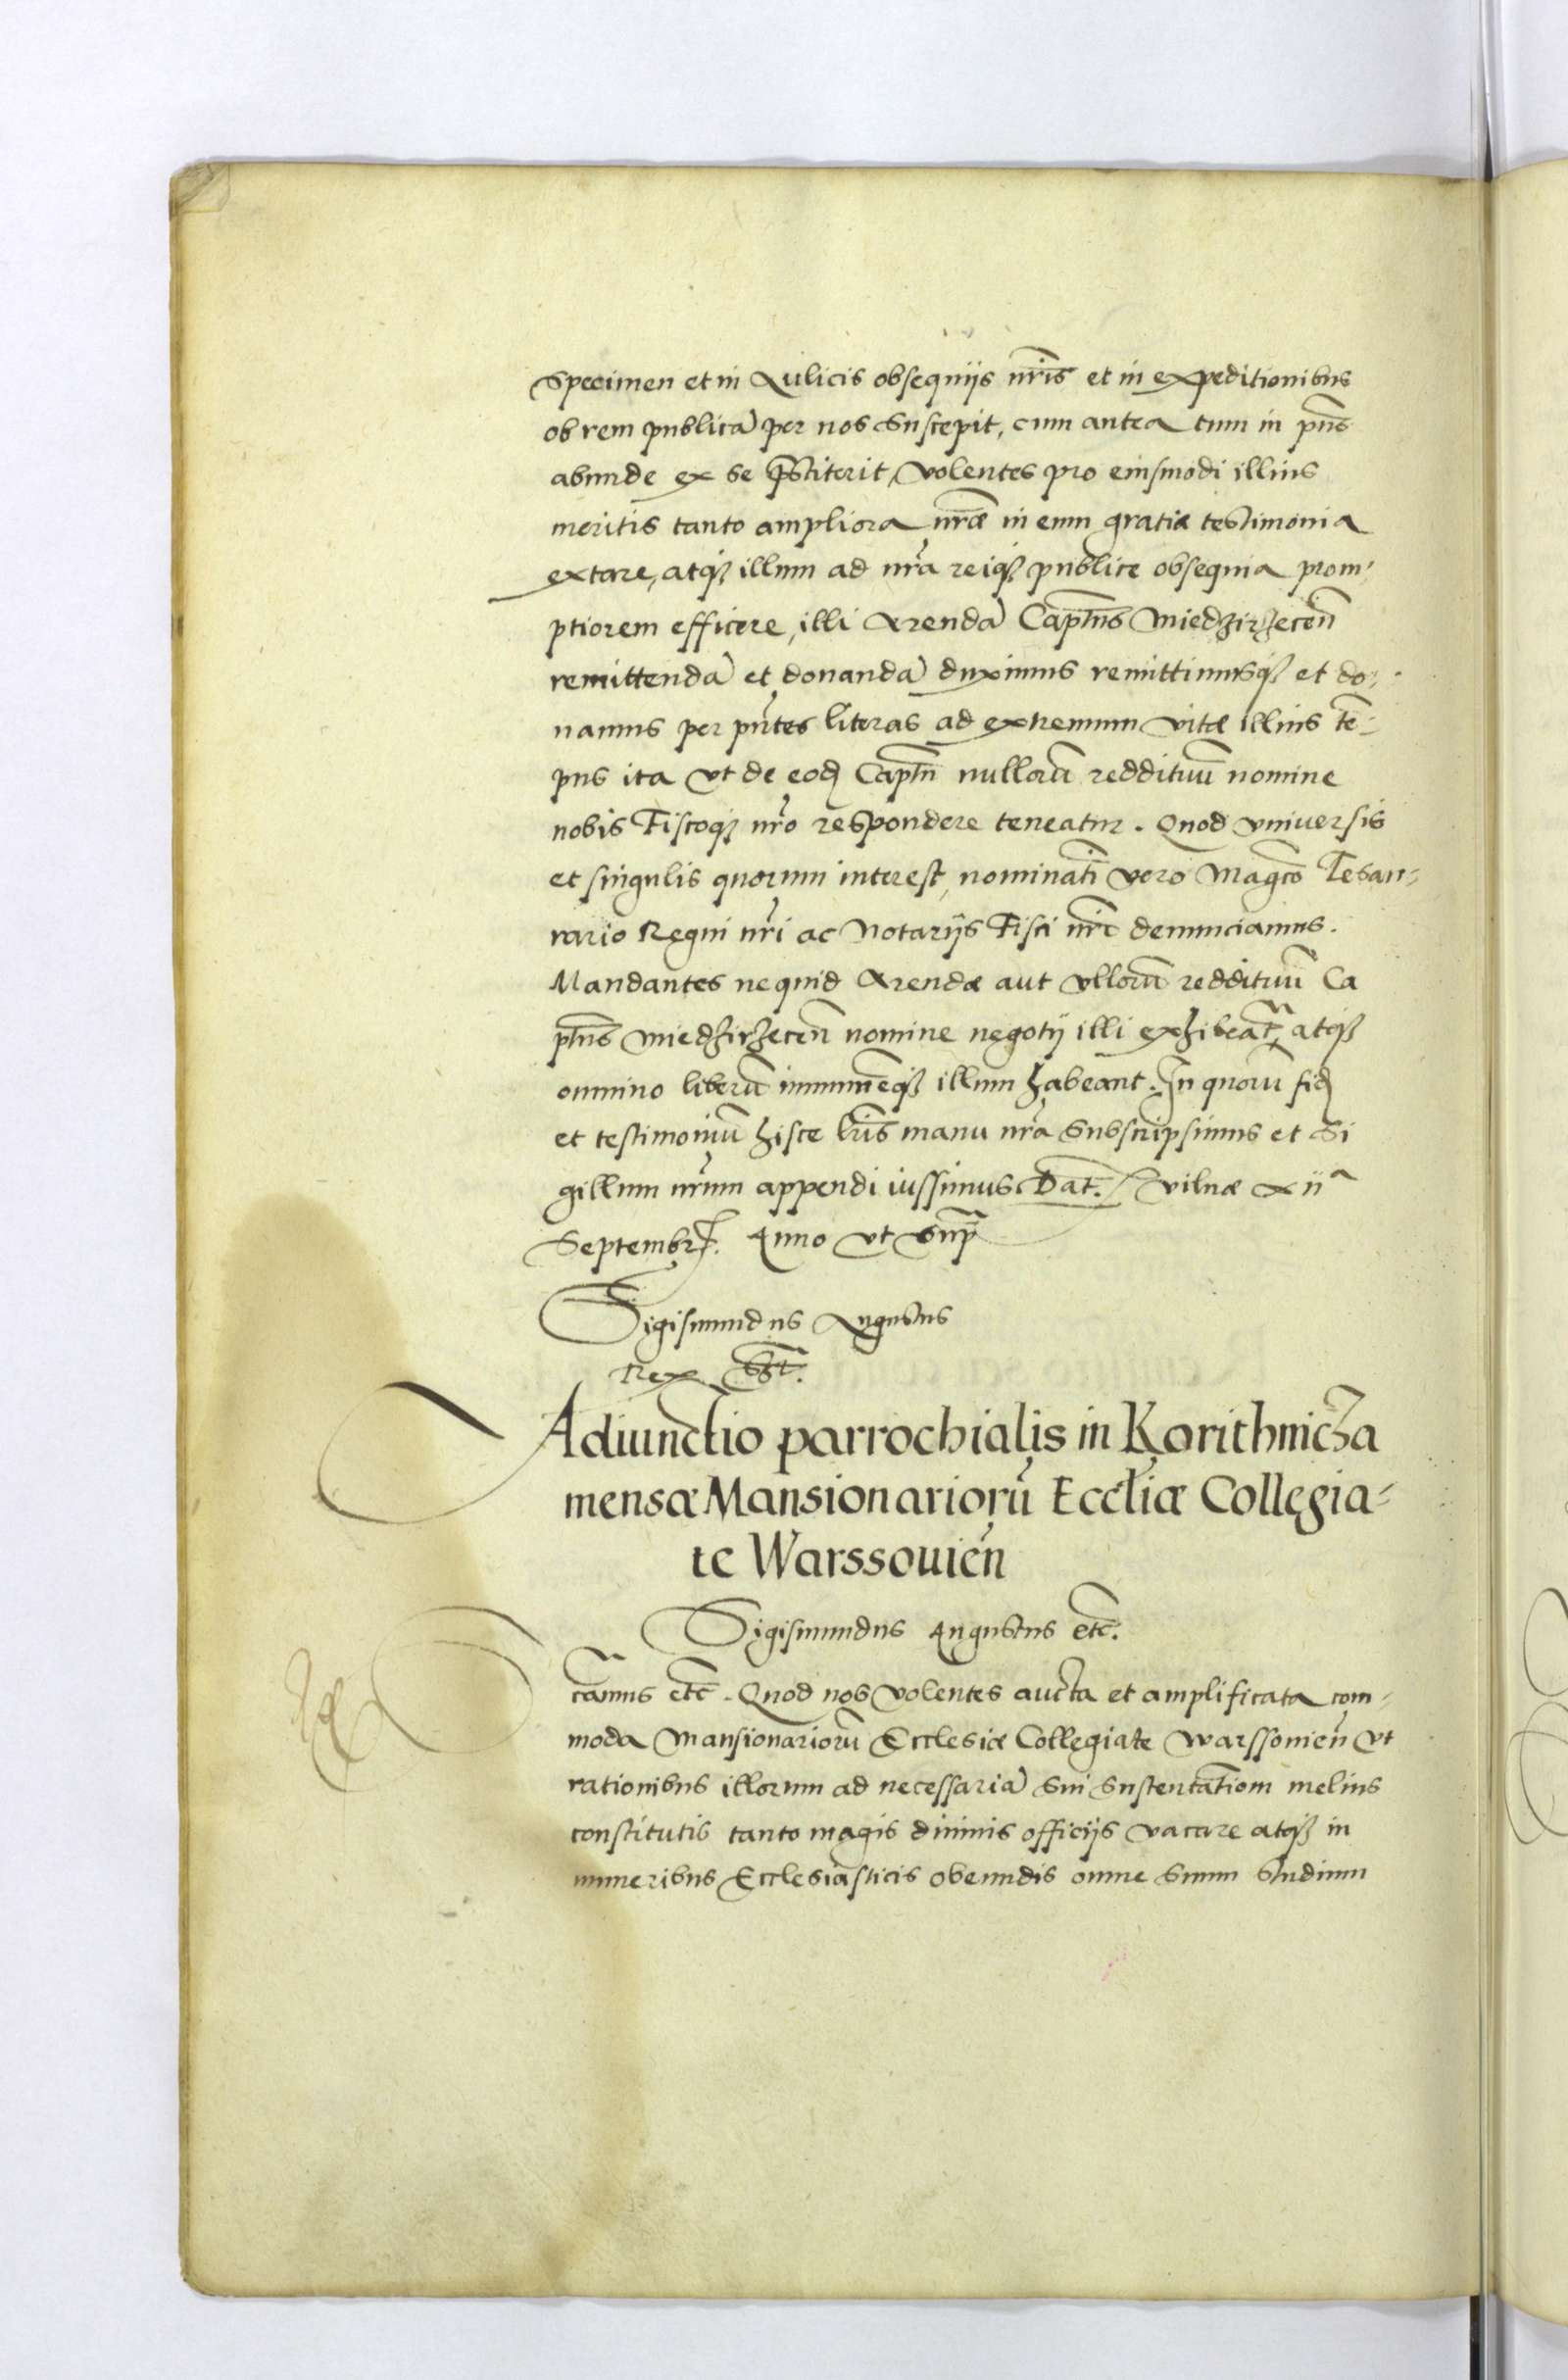 Specimen et in Aulicis obsequijs nr̃is et in expeditionibus
ob rem publicã per nos Suscepit, cum antea tum in pñs
abunde ex se p̃stiterit, volentes pro eiusmodi illius
meritis tanto ampliora nr̃æ in eum gratiæ testimonia
extare, atqʒ illum ad nr̃a reiqʒ publice obsequia prom-
ptiorem efficere, illi Arendã Captñs Miedzirzeceñ
remittendã et donandã duximus remittimusqʒ et do-
namus per pñtes literas ad extremum vitæ illius tẽ-
pus ita vt de eod Captñ nullorũ reddituũ nomine
nobis Fiscoqʒ nr̃o respondere teneatur. Quod vniuersis
et singulis quorum interest, nominatĩ vero Magc̃o Tesau-
rario Regni nr̃i ac Notarijs Fisci nr̃i denunciamus.
Mandantes ne quid Arendæ aut vllorũ reddituũ Ca
ptñs Miedzirzeceñ nomine negotij illi exhibeat̃, atqʒ
omnino liberũ immunẽqʒ illum habeant. In quorũ fid
et testimoniũ hisce lr̃is manu nr̃a Subscripsimus et Si
gillum nr̃um appendi iussimus. Dat̃. Vilnæ xijᵃ
Septembr. Anno vt Sup̃
Sigismundus Augustus
Rex Sst̃.
Adiunctio parrochialis in Korithnicza
mensæ Mansionariorũ Eccl̃iæ Collegia-
te Warssouieñ
Sigismundus Augustus etc̃.
cãmus etc̃. Quod nos volentes aucta et amplificata com-
moda Mansionariorũ Ecclesiæ Collegiate Warssouieñ vt
rationibus illorum ad necessariã Sui Sustentat̃iom melius
constitutis tanto magis diuinis officijs vacare atqʒ in
muneribus Ecclesiasticis obeundis omne Suum Studium